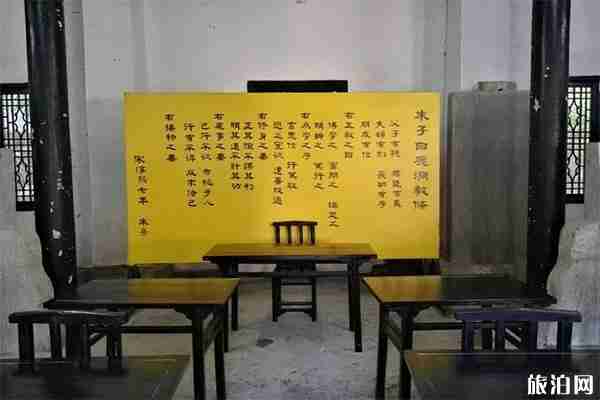 朱子白鹿洞教條
父子有親 君臣有義
夫婦有別 長幼有序
朋友有信
右五教之目
博學之 審問之 慎思之
明辨之 篤行之
右為學之序
言忠信 行篤敬
懲忿窒欲 遷善改過
右修身之要
正其誼不謀其利
明其道不計其功
右處事之要
己所不欲 勿施於人
行有不得 反求諸己
右接物之要
宋淳熙七年 朱子
旅泊网